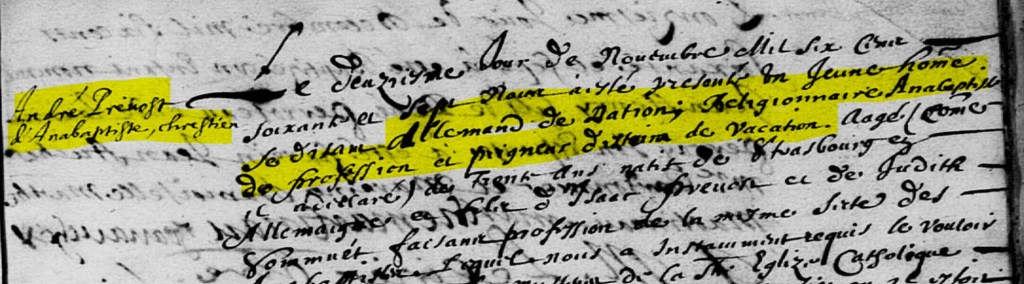 André Prévost
d'Anabaptiste, chrestien
Le deuxiesme Jour de Novembre Mil six Cent
soixante et Sept Nous a esté presenté un Jeune home
se disan Allemand de Nation; Religionnaire Anabaptiste
de profession et peigneur d'estaim de vacation. Aagé (come
il a declaré) de Trente ans natif de Strasbourg en
Allemaigne et fils d'Isaac prevost et de Judith
faisant profession de la mesme secte des
lequel nous a Instamment requis le vouloir
de la Ste. Eglize Catholique